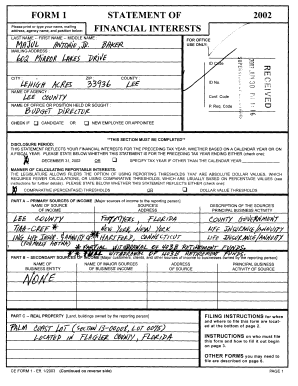 FORM 1 STATEMENT OF 2002
FINANCIAL INTERESTS
Please print or type your name, mailing address, agency name, and position below:
LAST NAME - FIRST NAME - MIDDLE NAME
MAJUL ANTONIO, JR. BAKER
MAILING ADDRESS
602 MIRROR LAKES DRIVE
CITY ZIP COUNTY
LEHIGH ACRES 33936 LEE
NAME OF AGENCY
LEE COUNTY
NAME OF OFFICE OR POSITION HELD OR SOUGHT
BUDGET DIRECTOR
CHECK IF CANDIDATE OR NEW EMPLOYEE OR APPOINTEE
FOR OFFICE USE ONLY:
ID Code
ID No.
Conf. Code
P. Req. Code
RECEIVED
**THIS SECTION MUST BE COMPLETED**
DISCLOSURE PERIOD:
THIS STATEMENT REFLECTS YOUR FINANCIAL INTERESTS FOR THE PRECEDING TAX YEAR, WHETHER BASED ON A CALENDAR YEAR OR ON A FISCAL YEAR. PLEASE STATE BELOW WHETHER THIS STATEMENT IS FOR THE PRECEDING TAX YEAR ENDING EITHER (check one):
DECEMBER 31, 2002 OR SPECIFY TAX YEAR IF OTHER THAN THE CALENDAR YEAR
MANNER OF CALCULATING REPORTABLE INTERESTS:
THE LEGISLATURE ALLOWS FILERS THE OPTION OF USING REPORTING THRESHOLDS THAT ARE ABSOLUTE DOLLAR VALUES, WHICH REQUIRES FEWER CALCULATIONS, OR USING COMPARATIVE THRESHOLDS, WHICH ARE USUALLY BASED ON PERCENTAGE VALUES (see instructions for further details). PLEASE STATE BELOW WHETHER THIS STATEMENT REFLECTS EITHER (check one):
COMPARATIVE (PERCENTAGE) THRESHOLDS OR DOLLAR VALUE THRESHOLDS
PART A -- PRIMARY SOURCES OF INCOME (Major sources of income to the reporting person)
NAME OF SOURCE OF INCOME SOURCE'S ADDRESS DESCRIPTION OF THE SOURCE'S PRINCIPAL BUSINESS ACTIVITY
LEE COUNTY FORT MYERS, FLORIDA COUNTY GOVERNMENT
TIAA-CREF * NEW YORK NEW YORK LIFE INSURANCE/ANNUITY
ING LIFE INSUR. & ANNUITY CO ** HARTFORD, CONNECTICUT LIFE INSURANCE/ANNUITY
(FORMERLY AETNA) * PARTIAL WITHDRAWAL OF 403B RETIREMENT FUNDS
** FULL WITHDRAWAL OF 403B RETIREMENT FUNDS
PART B -- SECONDARY SOURCES OF INCOME
NAME OF BUSINESS ENTITY NAME OF MAJOR SOURCES OF BUSINESS' INCOME ADDRESS OF SOURCE PRINCIPAL BUSINESS ACTIVITY OF SOURCE
NONE
PART C -- REAL PROPERTY (Land, buildings owned by the reporting person)
PALM COAST LOT (SECTION 13-00008, LOT 0045)
LOCATED IN FLAGLER COUNTY, FLORIDA
FILING INSTRUCTIONS for when and where to file this form are located at the bottom of page 2.
INSTRUCTIONS on who must file this form and how to fill it out begin on page 3.
OTHER FORMS you may need to file are described on page 6.
CE FORM 1 - Eff. 1/2003 (Continued on reverse side) PAGE 1